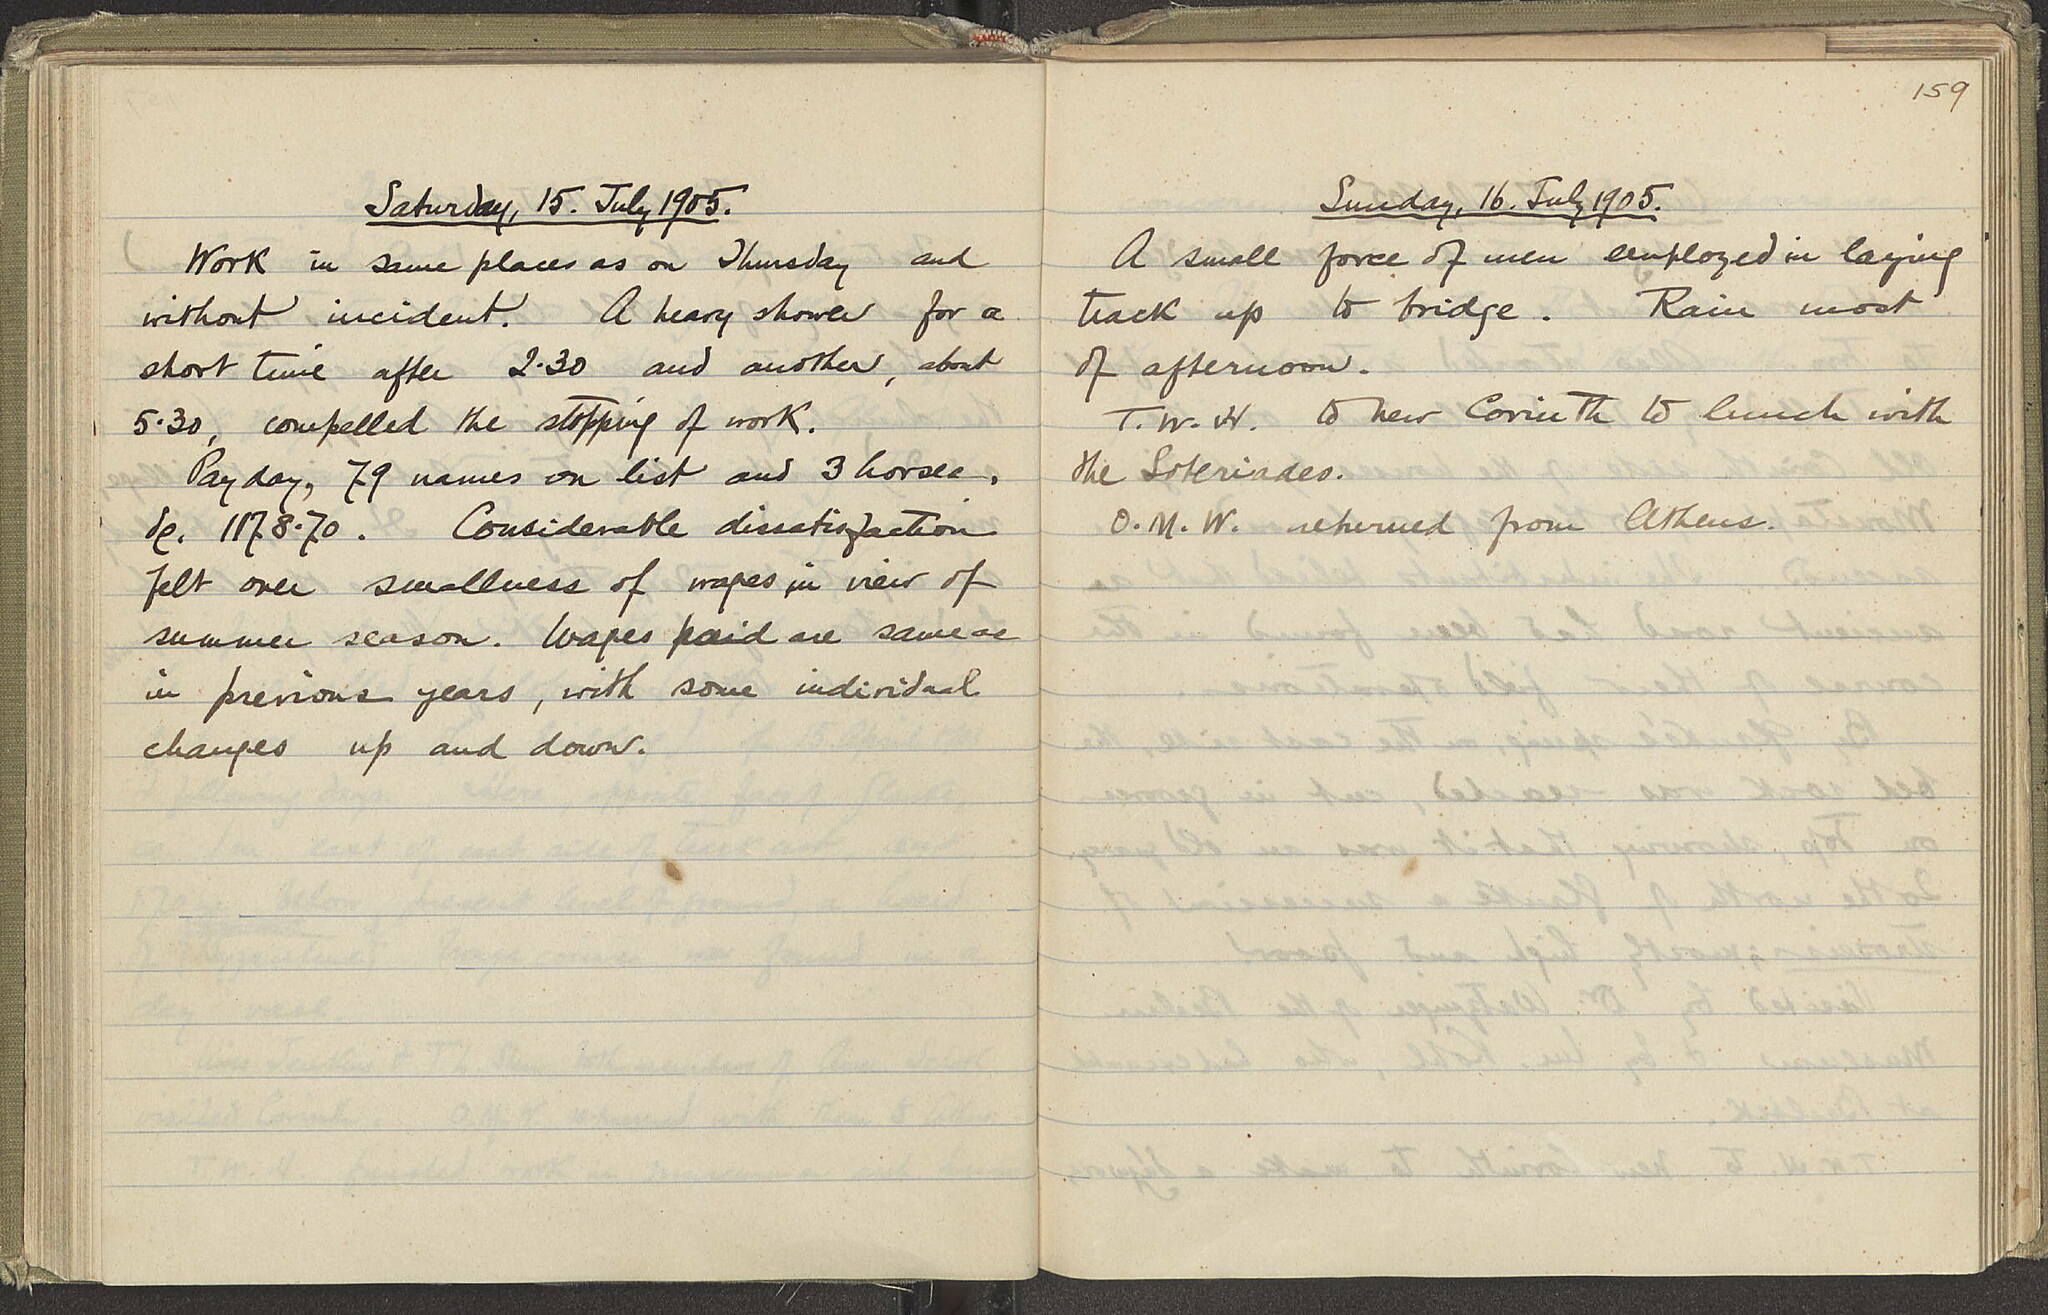 Saturday, 15. July 1905.
Work in same places as on Thursday and
without incident. A heavy shower for a
short time after 2.30 and another, about
5.30, compelled the stopping of work.
Payday, 79 names on list and 3 horses,
1178.70. Considerable dissatisfaction
felt over smallness of wages in view of
summer season. Wages paid are same as
in previous years, with some individual
changes up and down.
159
Sunday, 16. July 1905.
A small force of men employed in laying
track up to bridge. Rain most
of afternoon.
T.W.H. to New Corinth to lunch with
the Soteriades.
O.M.W. returned from Athens.